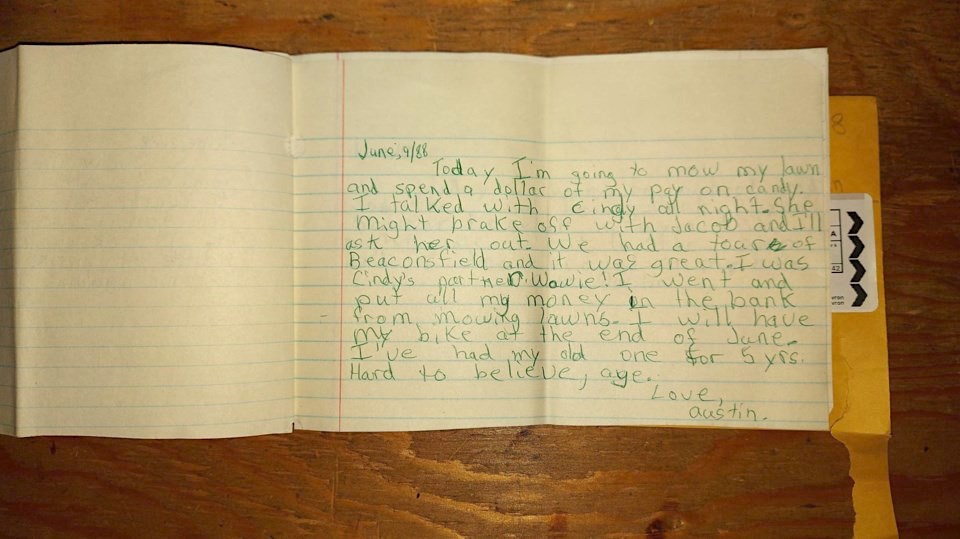 June, 9/88
Today I'm going to mow my lawn
and spend a dollar of my pay on candy.
I talked with Cindy all night. She
might brake off with Jacob and I'll
ask her out. We had a toare of
Beaconsfield and it was great. I was
Cindy's partner. Wowie! I went and
put all my money in the bank
from mowing lawns. I will have
my bike at the end of June.
I've had my old one for 5 yrs.
Hard to believe, aye.
Love,
austin.
8
A
42